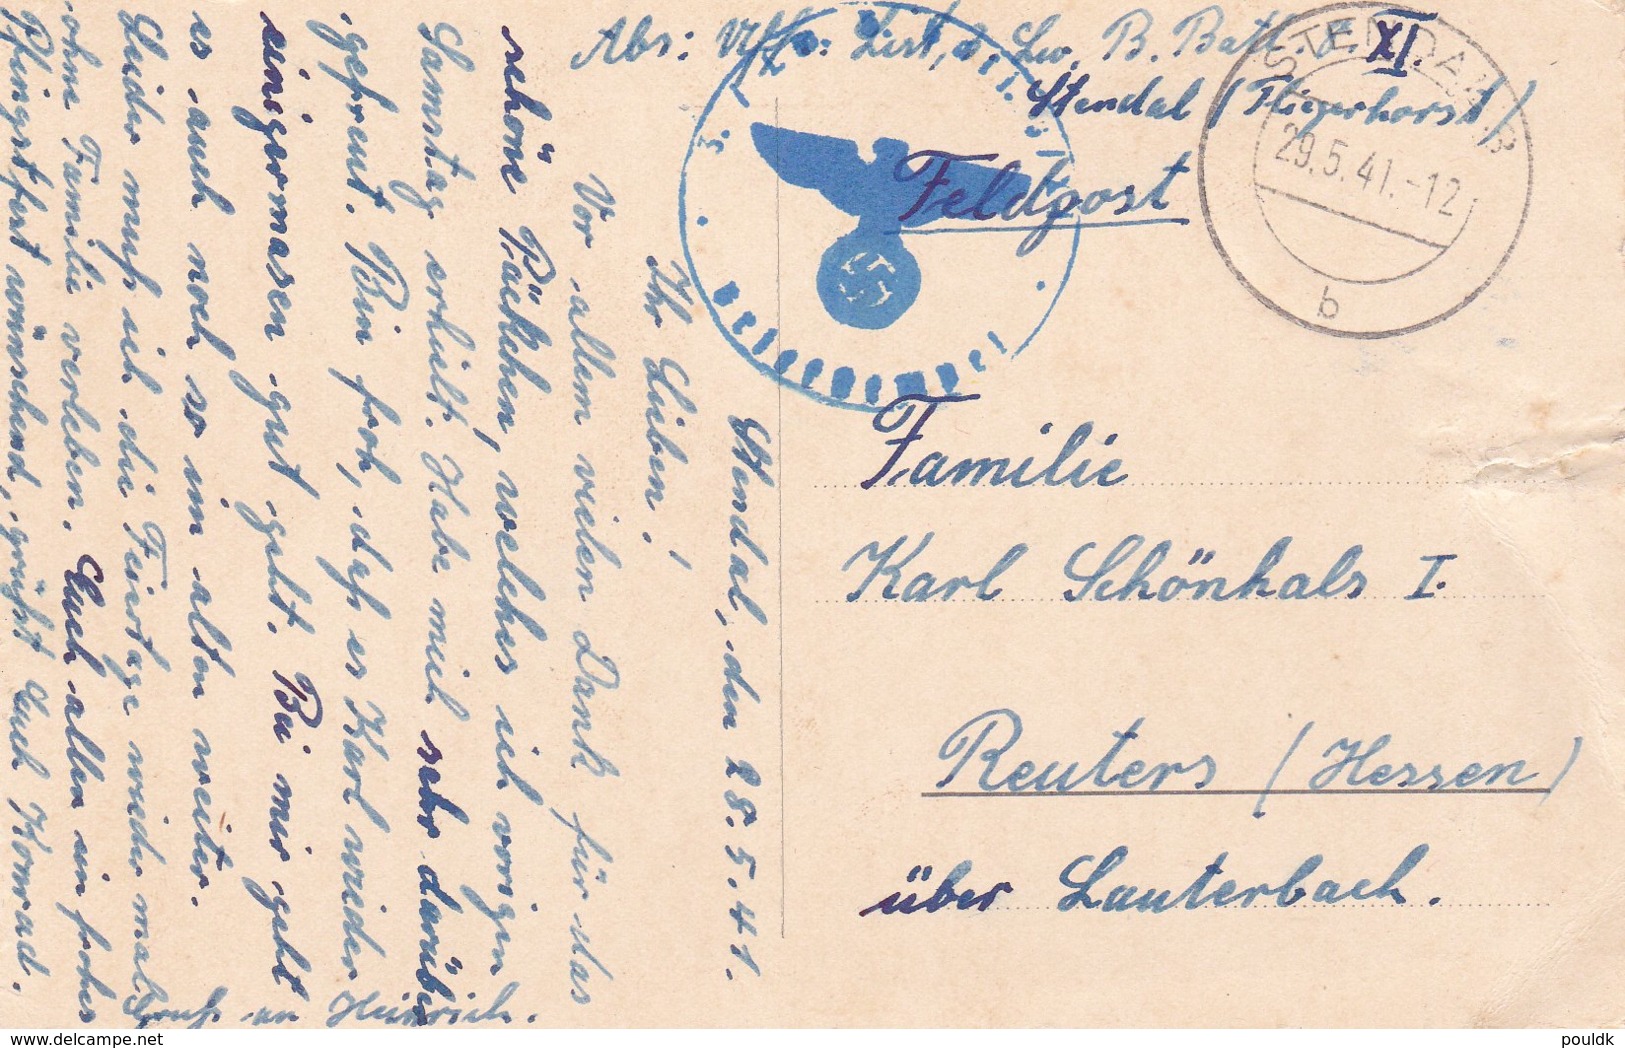 Abs: Uffz. List, Lw. B. Batl. XI.
Stendal (Fliegerhorst)
STENDAL
29.5.41.-12
b
Feldpost
Briefstempel
Familie
Karl Schönhals I.
Reuters (Hessen)
über Lauterbach.
Stendal, den 28.5.41.
Ihr Lieben!
Vor allem vielen Dank für das
schöne Päckchen, welches ich vorigen
Samstag erhielt. Habe mich sehr darüber
gefreut. Bin froh, daß es Karl wieder
einigermasen gut geht. Bei mir geht
es auch noch so im alten weiter.
Leider muß ich die Feiertage wieder mal
ohne Familie verleben. Euch allen ein frohes
Pfingstfest wünschend, grüßt Euch Konrad.
Gruß an Heinrich.
pouldk